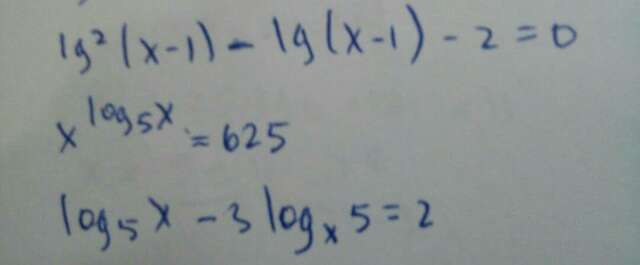 lg²(x-1) - lg(x-1) - 2 = 0
x^(log₅x) = 625
log₅x - 3 logₓ5 = 2